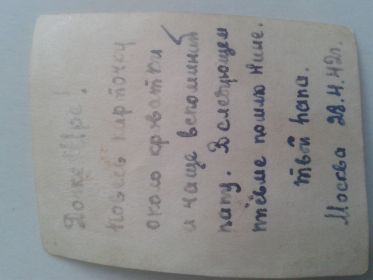 Дочке Ире!
Повесь карточку
около кроватки
и чаще вспоминай
папу. В следующем
письме пошлю Нине.
Твой папа.
Москва 28.4.42г.